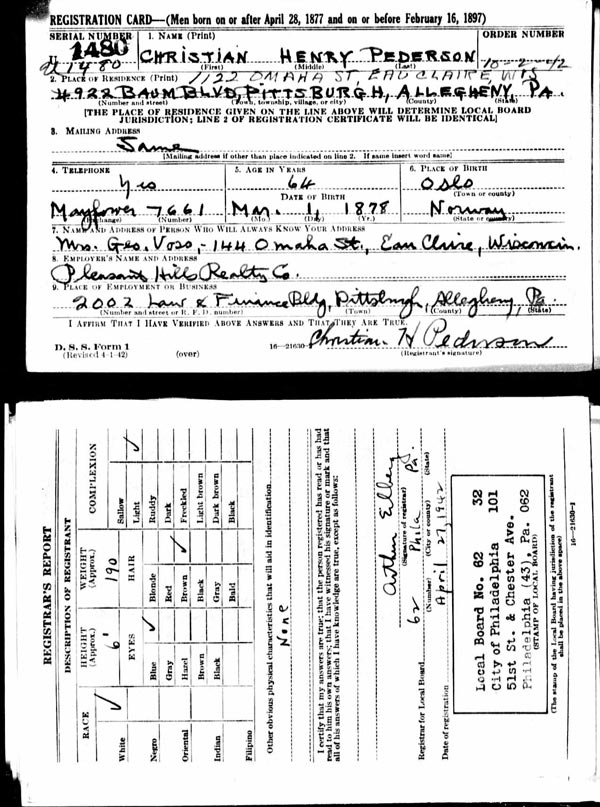 REGISTRATION CARD—(Men born on or after April 28, 1877 and on or before February 16, 1897)
SERIAL NUMBER 1. NAME (Print) ORDER NUMBER
1480 CHRISTIAN HENRY PEDERSON
1480 (First) (Middle) (Last) 10-2-42
2. PLACE OF RESIDENCE (Print) 1122 OMAHA ST. EAU CLAIRE, WIS
4922 BAUM BLVD, PITTSBURGH, ALLEGHENY, PA.
(Number and street) (Town, township, village, or city) (County) (State)
[THE PLACE OF RESIDENCE GIVEN ON THE LINE ABOVE WILL DETERMINE LOCAL BOARD
JURISDICTION; LINE 2 OF REGISTRATION CERTIFICATE WILL BE IDENTICAL]
3. MAILING ADDRESS
Same
[Mailing address if other than place indicated on line 2. If same insert word same]
4. TELEPHONE 5. AGE IN YEARS 6. PLACE OF BIRTH
Yes 64 Oslo
DATE OF BIRTH (Town or county)
Mayflower 7661 Mar. 1, 1878 Norway
(Exchange) (Number) (Mo.) (Day) (Yr.) (State or country)
7. NAME AND ADDRESS OF PERSON WHO WILL ALWAYS KNOW YOUR ADDRESS
Mrs. Geo. Voss - 144 Omaha St., Eau Claire, Wisconsin.
8. EMPLOYER'S NAME AND ADDRESS
Pleasant Hills Realty Co.
9. PLACE OF EMPLOYMENT OR BUSINESS
2002 Law & Finance Bldg, Pittsburgh, Allegheny, Pa.
(Number and street or R. F. D. number) (Town) (County) (State)
I AFFIRM THAT I HAVE VERIFIED ABOVE ANSWERS AND THAT THEY ARE TRUE.
D. S. S. Form 1 Christian H Pederson
(Revised 4-1-42) (over) 16—21630 (Registrant's signature)
REGISTRAR'S REPORT
DESCRIPTION OF REGISTRANT
RACE HEIGHT (Approx.) WEIGHT (Approx.) COMPLEXION
6' 190
White EYES HAIR Sallow
Light
Negro Blue Blonde Ruddy
Gray Red Dark
Oriental Hazel Brown Freckled
Brown Black Light brown
Indian Black Gray Dark brown
Bald Black
Filipino
Other obvious physical characteristics that will aid in identification
None
I certify that my answers are true; that the person registered has read or has had
read to him his own answers; that I have witnessed his signature or mark and that
all of his answers of which I have knowledge are true, except as follows:
Arthur Elberg
(Signature of registrar)
Registrar for Local Board 62 Phila Pa.
(Number) (City or county) (State)
Date of registration April 27, 1942
Local Board No. 62 32
City of Philadelphia 101
51st St. & Chester Ave.
Philadelphia (43), Pa. 062
(STAMP OF LOCAL BOARD)
(The stamp of the Local Board having jurisdiction of the registrant
shall be placed in the above space)
16—21630-1